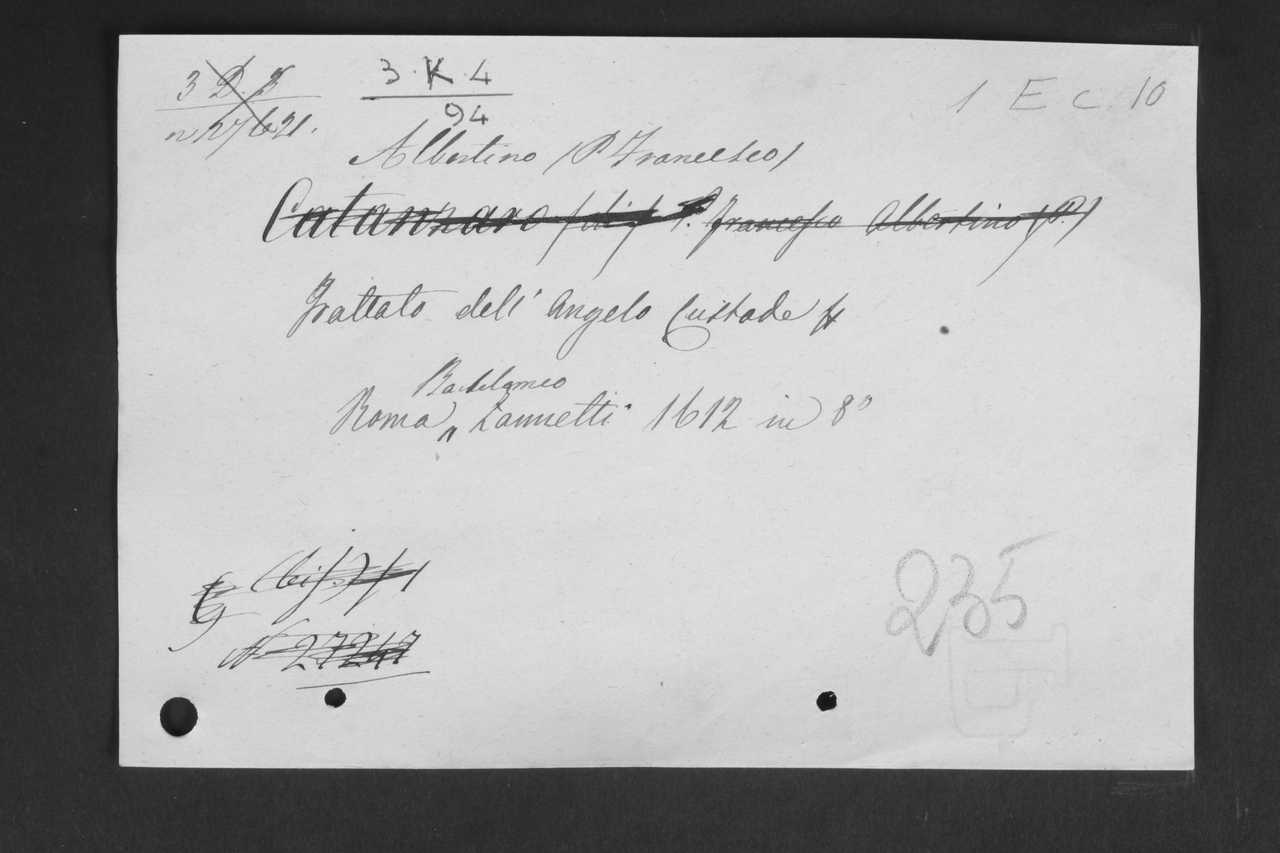 3 D. 8 3. K. 4 1 E C. 10
n 27621. 94
Albertino (P. Francesco)
Catanzaro (di) P. Francesco Albertino (P.)
Trattato dell' Angelo Custode
Bartolomeo
Roma, Zannetti 1612 in 8º
235
N 27247